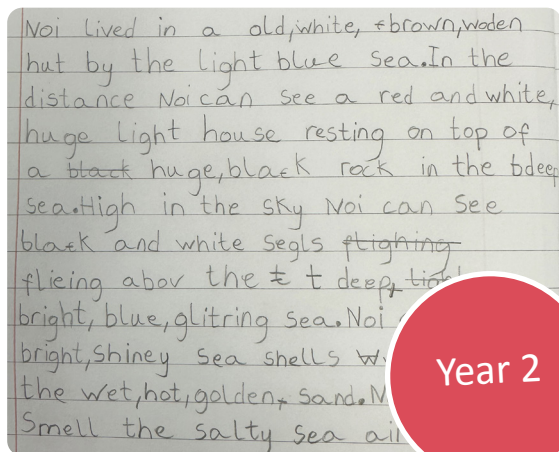 Noi lived in a old, white, brown, woden
hut by the light blue sea. In the
distance Noi can see a red and white,
huge light house resting on top of
a black huge, black rock in the deep
sea. High in the sky Noi can see
black and white segls flighing
flieing abov the t t deep,
bright, blue, glitring sea. Noi
bright, shiney sea shells
the wet, hot, golden, sand.
Smell the salty sea air
Year 2